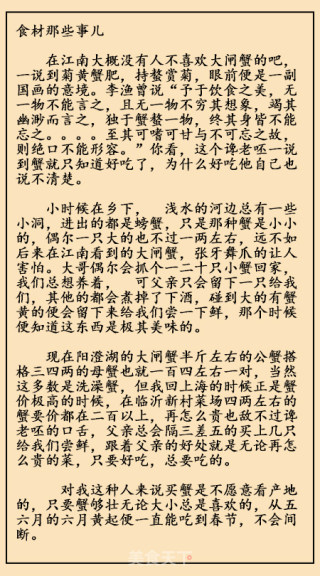 食材那些事儿
在江南大概没有人不喜欢大闸蟹的吧，
一说到菊黄蟹肥，持螯赏菊，眼前便是一副
国画的意境。李渔曾说“予于饮食之美，无
一物不能言之，且无一物不穷其想象，竭其
幽渺而言之，独于蟹螯一物，终其身皆不能
忘之。。。。至其可嗜可甘与不可忘之故，
则绝口不能形容。”你看，这个谗老坯一说
到蟹就只知道好吃了，为什么好吃他自己也
说不清楚。
小时候在乡下， 浅水的河边总有一些
小洞，进出的都是螃蟹，只是那种蟹是小小
的，偶尔一只大的也不过一两左右，远不如
后来在江南看到的大闸蟹，张牙舞爪的让人
害怕。大哥偶尔会抓个一二十只小蟹回家，
我们总想养着， 可父亲只会留下一只给我
们，其他的都会煮掉了下酒，碰到大的有蟹
黄的便会留下来给我们尝一下鲜，那个时候
便知道这东西是极其美味的。
现在阳澄湖的大闸蟹半斤左右的公蟹搭
格三四两的母蟹也就一百四左右一对，当然
这多数是洗澡蟹，但我回上海的时候正是蟹
价极高的时候，在临沂新村菜场四两左右的
蟹要价都在二百以上，再怎么贵也敌不过谗
老坯的口舌，父亲总会隔三差五的买上几只
给我们尝鲜，跟着父亲的好处就是无论再怎
么贵的菜，只要好吃，总要吃的。
对我这种人来说买蟹是不愿意看产地
的，只要蟹够壮无论大小总是喜欢的，从五
六月的六月黄起便一直能吃到春节，不会间
断。
美食天下